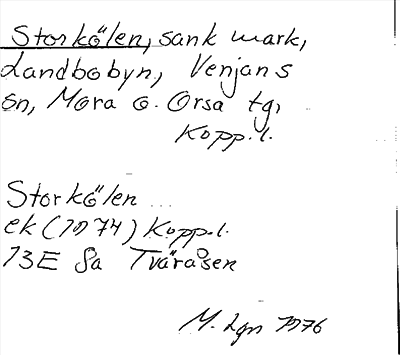 Storkölen, sank mark,
Landbobyn, Venjans
sn, Mora o. Orsa tg,
Kopp.l.
Storkölen
ek (1974) Kopp.l.
13E 8a Tväråsen
M. Lgn 1976